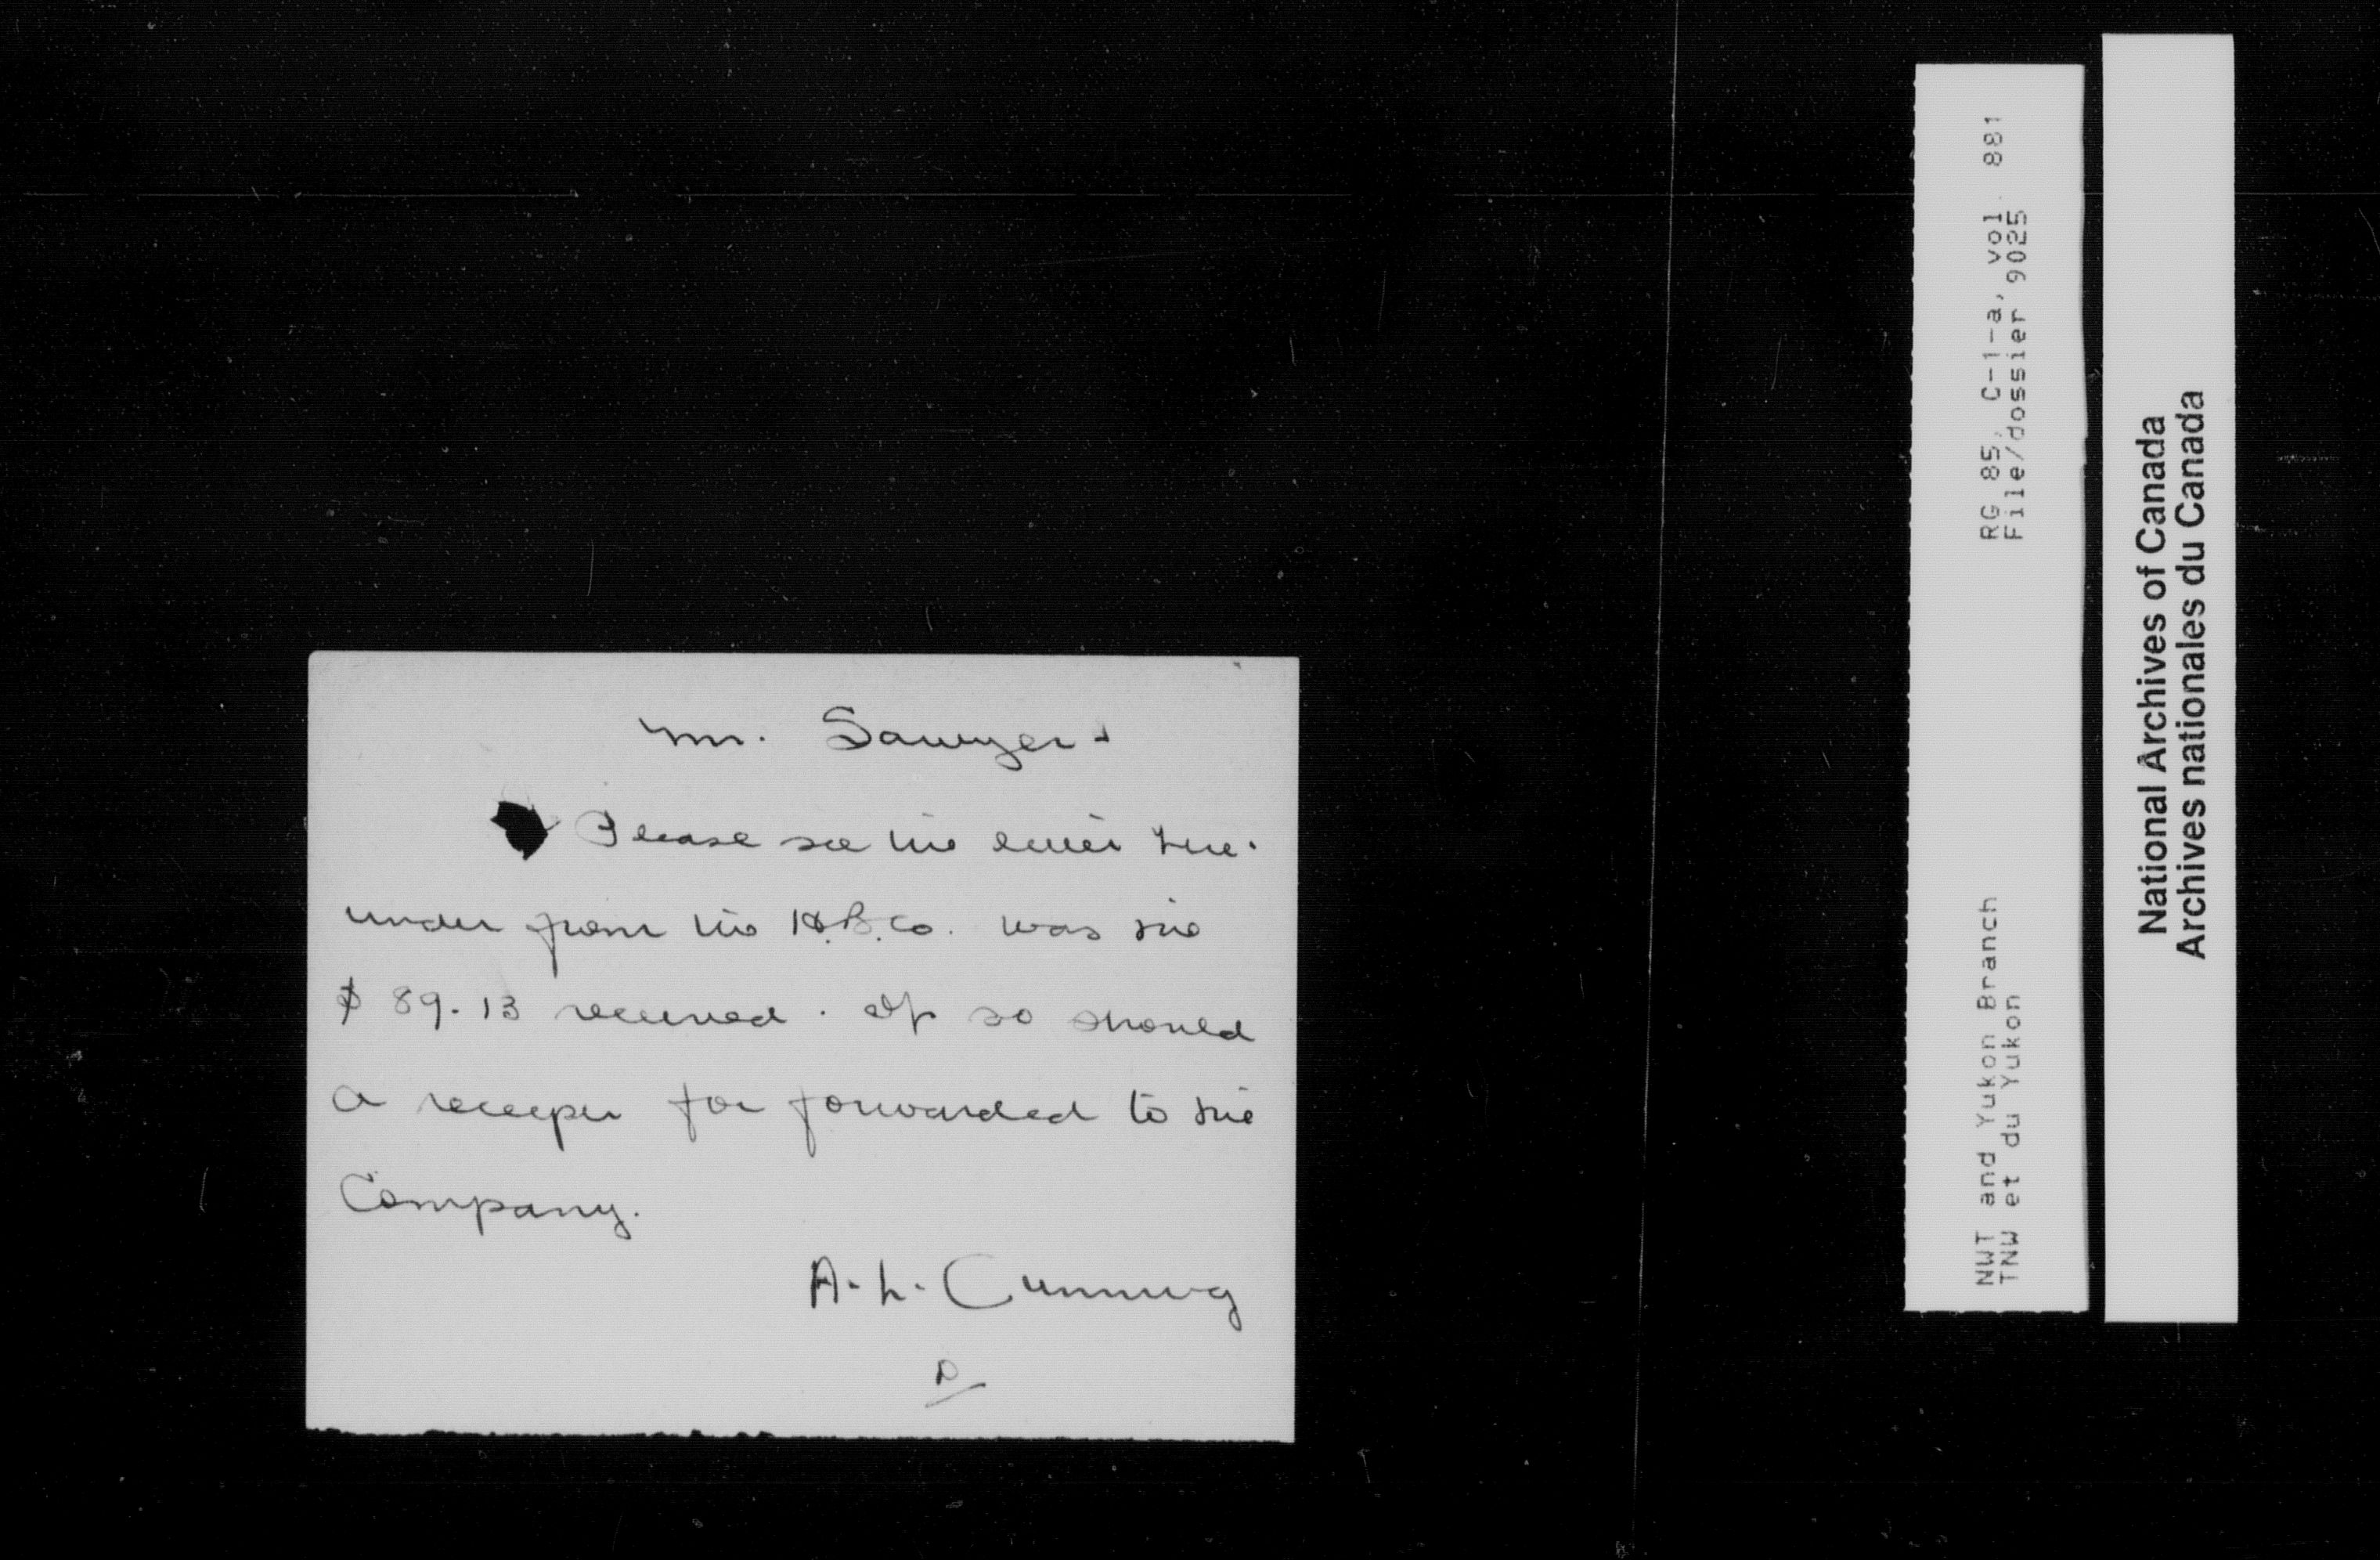 Mr. Sawyer.
Please see the letter here-
under from the H.B.Co. was the
$ 89.13 received. If so should
a receipt for forwarded to the
Company.
A. L. Cumming
NWT and Yukon Branch RG 85, C-1-a, vol. 881
TNW et du Yukon File/dossier 9025
National Archives of Canada
Archives nationales du Canada